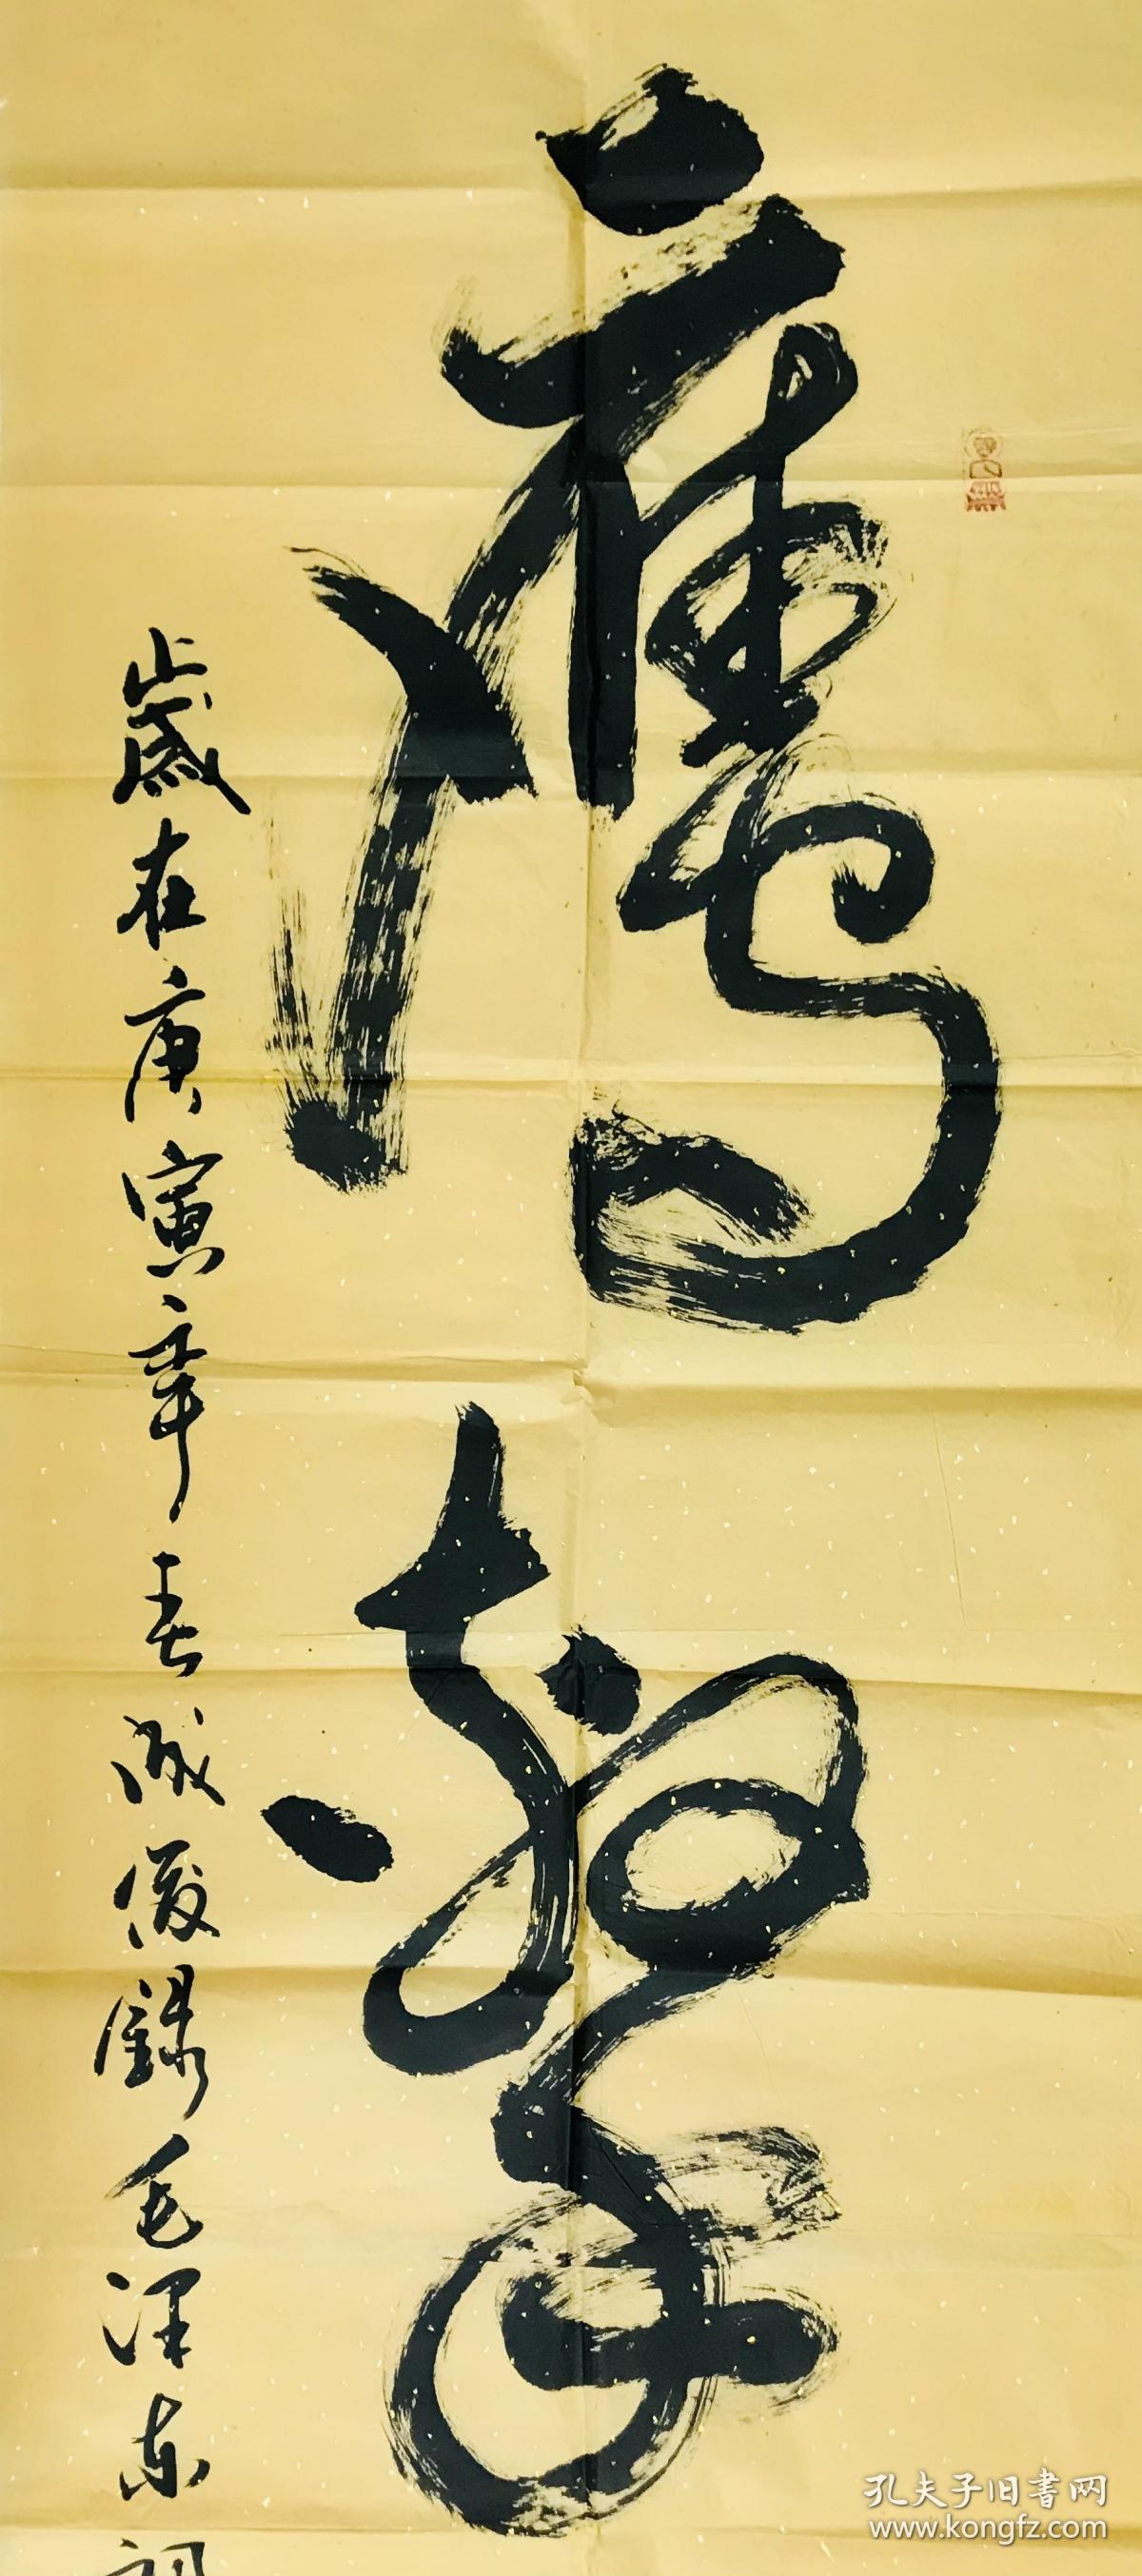 鹰击
岁在庚寅年春成俊录毛泽东词
孔夫子旧书网
www.kongfz.com